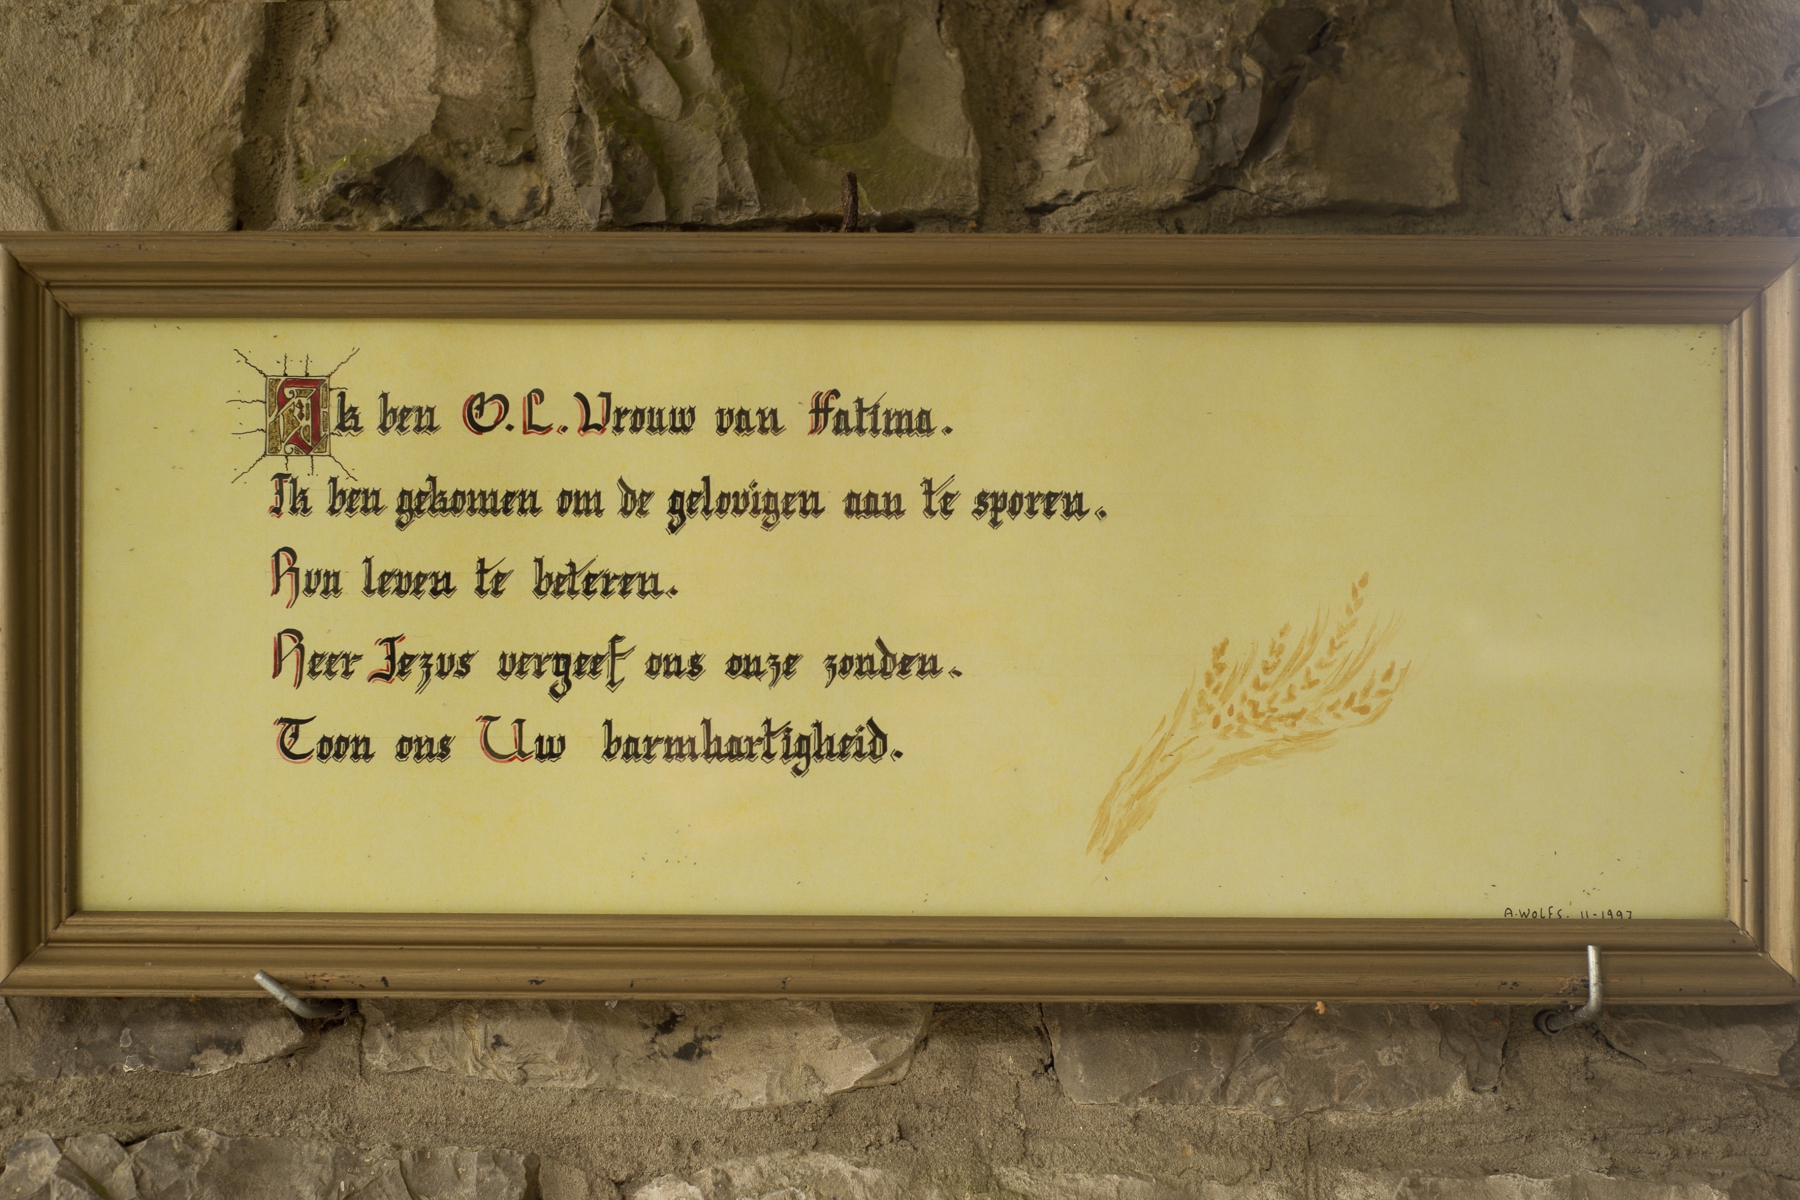 Ik ben O.L. Vrouw van Fatima.
Ik ben gekomen om de gelovigen aan te sporen.
Hun leven te beteren.
Heer Jezus vergeef ons onze zonden.
Toon ons Uw barmhartigheid.
A. WOLFS. 11-1997